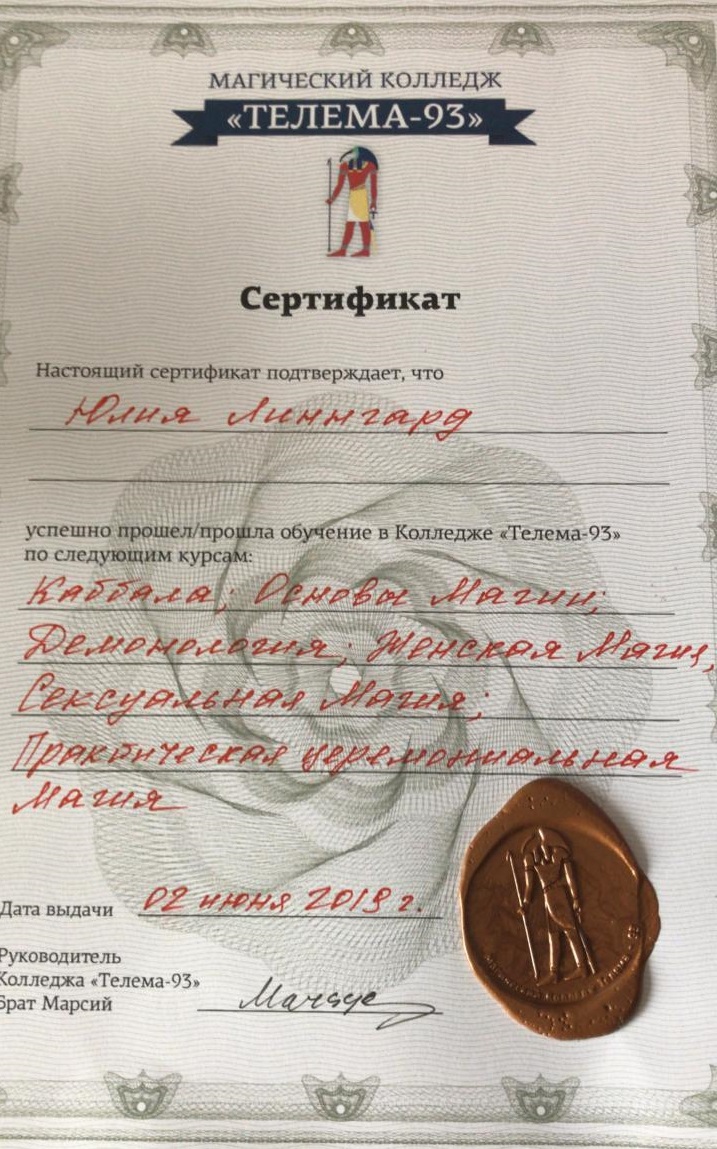 МАГИЧЕСКИЙ КОЛЛЕДЖ
«ТЕЛЕМА-93»
Сертификат
Настоящий сертификат подтверждает, что
Юлия Линнгард
успешно прошел/прошла обучение в Колледже «Телема-93»
по следующим курсам:
Каббала; Основы Магии;
Демонология; Женская Магия,
Сексуальная Магия;
Практическая церемониальная
Магия
Дата выдачи 02 июня 2019 г.
Руководитель
Колледжа «Телема-93»
Брат Марсий